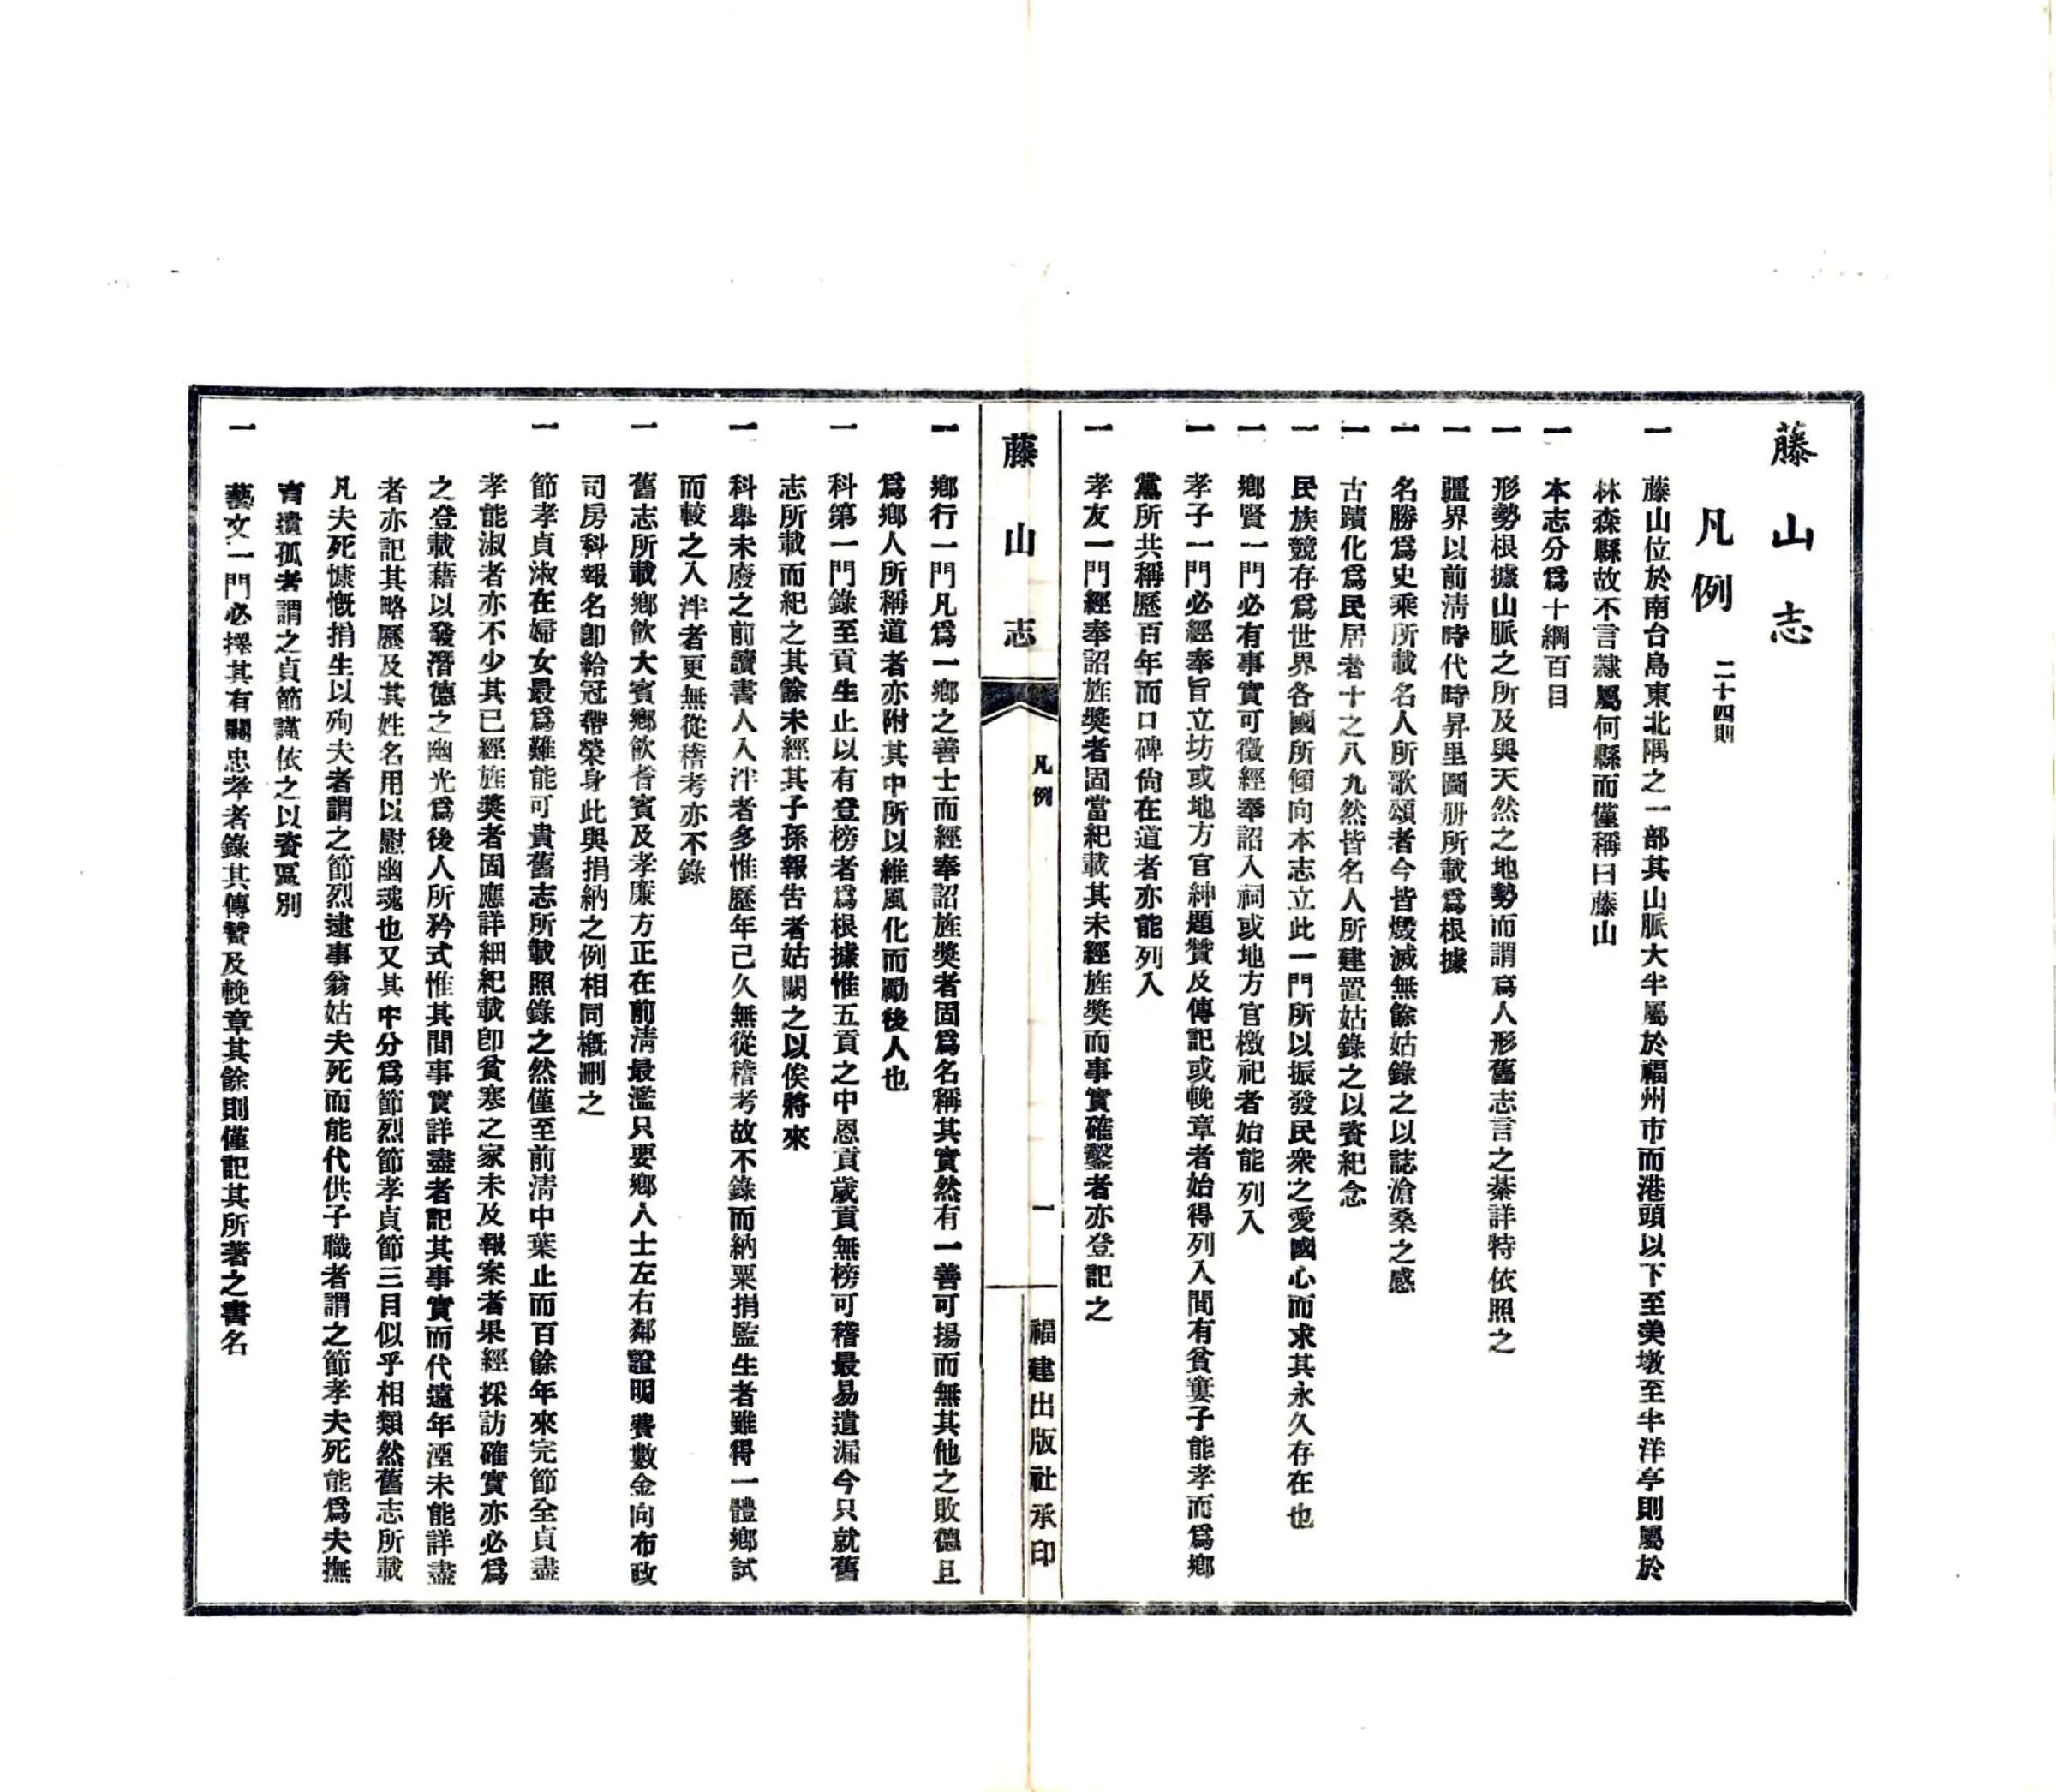 藤山志
凡例 二十四則
一 藤山位於南台島東北隅之一部其山脈大半屬於福州市而港頭以下至美墩至半洋亭則屬於
林森縣故不言隷屬何縣而僅稱曰藤山
一 本志分爲十綱百目
一 形勢根據山脈之所及與天然之地勢而謂爲人形舊志言之綦詳特依照之
一 疆界以前淸時代時昇里圖册所載爲根據
一 名勝爲史乘所載名人所歌頌者今皆燬滅無餘姑錄之以誌滄桑之感
一 古蹟化爲民居者十之八九然皆名人所建置姑錄之以資紀念
一 民族競存爲世界各國所傾向本志立此一門所以振發民衆之愛國心而求其永久存在也
一 鄉賢一門必有事實可徵經奉詔入祠或地方官檄祀者始能列入
一 孝子一門必經奉旨立坊或地方官紳題贊及傳記或輓章者始得列入間有貧窶子能孝而爲鄉
黨所共稱歷百年而口碑尙在道者亦能列入
一 孝友一門經奉詔旌獎者固當紀載其未經旌獎而事實確鑿者亦登記之
藤山志
凡例
一
福建出版社承印
一 鄉行一門凡爲一鄉之善士而經奉詔旌獎者固爲名稱其實然有一善可揚而無其他之敗德且
爲鄉人所稱道者亦附其中所以維風化而勵後人也
一 科第一門錄至貢生止以有登榜者爲根據惟五貢之中恩貢歲貢無榜可稽最易遺漏今只就舊
志所載而紀之其餘未經其子孫報告者姑闕之以俟將來
一 科舉未廢之前讀書人入泮者多惟歷年已久無從稽考故不錄而納粟捐監生者雖得一體鄉試
而較之入泮者更無從稽考亦不錄
一 舊志所載鄉飮大賓鄉飮耆賓及孝廉方正在前淸最濫只要鄉人士左右鄰證明費數金向布政
司房科報名卽給冠帶榮身此與捐納之例相同槪刪之
一 節孝貞淑在婦女最爲難能可貴舊志所載照錄之然僅至前淸中葉止而百餘年來完節全貞盡
孝能淑者亦不少其已經旌獎者固應詳細紀載卽貧寒之家未及報案者果經採訪確實亦必爲
之登載藉以發潛德之幽光爲後人所矜式惟其間事實詳盡者記其事實而代遠年湮未能詳盡
者亦記其略歷及其姓名用以慰幽魂也又其中分爲節烈節孝貞節三目似乎相類然舊志所載
凡夫死慷慨捐生以殉夫者謂之節烈逮事翁姑夫死而能代供子職者謂之節孝夫死能爲夫撫
育遺孤者謂之貞節謹依之以資區別
一 藝文一門必擇其有關忠孝者錄其傳贊及輓章其餘則僅記其所著之書名